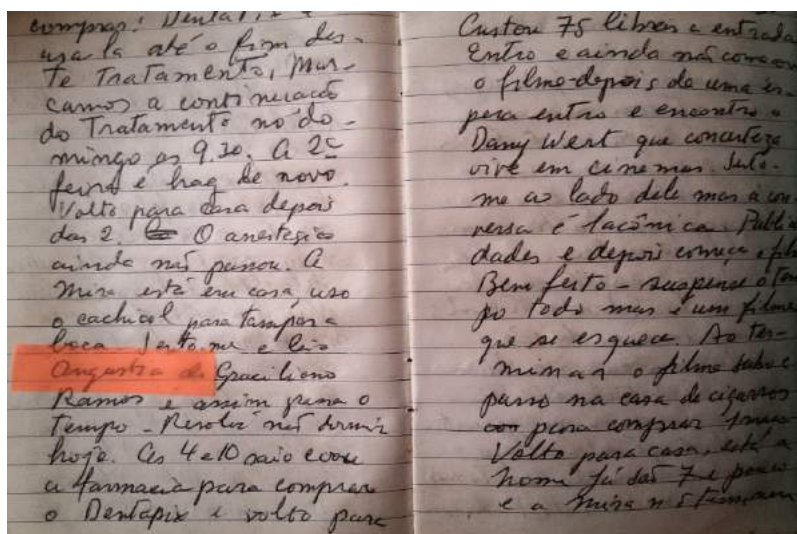 comprar: Dentapix e
usa-la até o fim des-
te Tratamento, Mar-
camos a continuacão
do Tratamento no do-
mingo as 9,30. A 2ª
feira é hag de novo.
Volto para casa depois
das 2. O anestesico
ainda não passou. A
Mira está em casa, uso
o cachicol para tampar a
boca. Sento-me e leio
Angustia de Graciliano
Ramos e assim passa o
Tempo - Resolvi não dormir
hoje. As 4 e 10 saio e vou
a farmacia para comprar
o Dentapix e volto para
Custou 75 libras a entrada
Entro e ainda não começou
o filme - depois de uma es-
pera entro e encontro o
Dany Wert que concerteza
vive em cinemas. Sento-
me ao lado dele mas a con-
versa é lacônica. Publi
dades e depois começa o film
Bem feito - suspense o Tem
po Todo mas é um filme
que se esquece. Ao Ter-
minar o filme subo e
passo na casa de cigarros
para comprar
Volto para casa, está a
Nomi já são 7 e pouco
e a Mira não